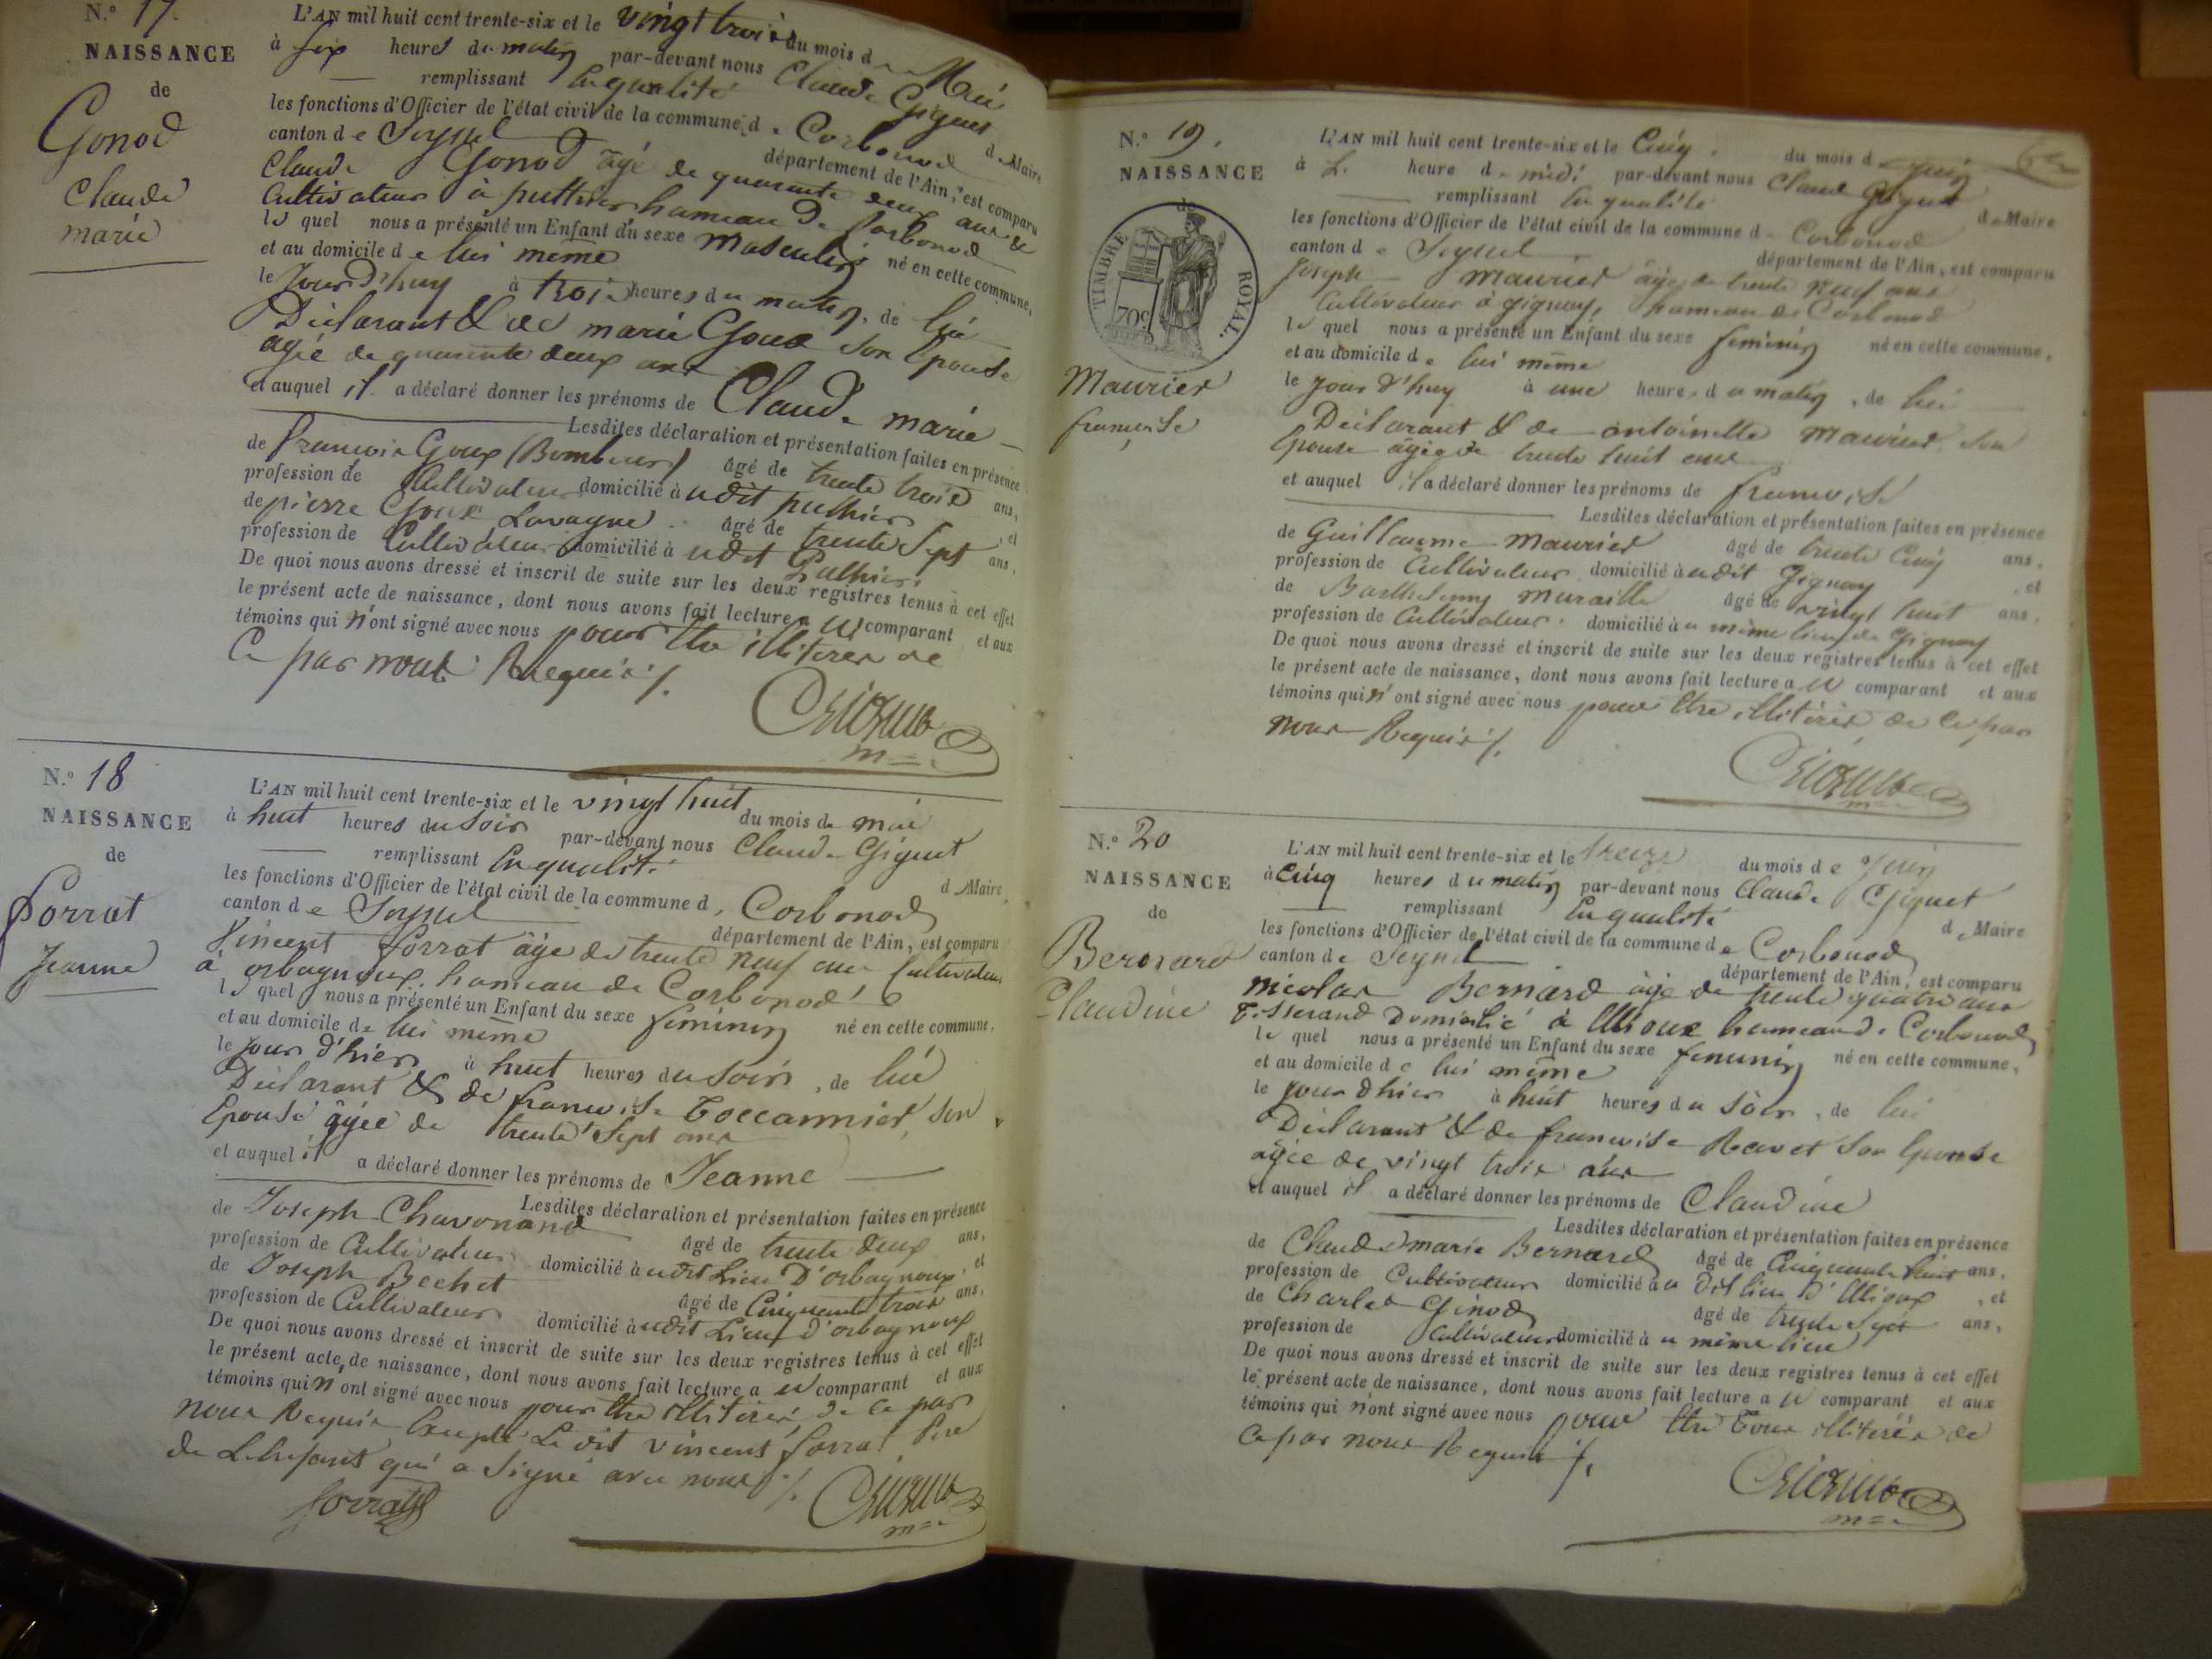 N.o 17.
NAISSANCE
de
Gonod
Claude
marie
L'AN mil huit cent trente-six et le vingt trois du mois de Mai
à six heures du matin par-devant nous Claude Giguet
remplissant En qualité de Maire
les fonctions d'Officier de l'état civil de la commune de Corbonod
canton de Seyssel département de l'Ain, est comparu
Claude Gonod âgé de quarante deux ans &
Cultivateur à puthier hameau de Corbonod
le quel nous a présenté un Enfant du sexe Masculin né en cette commune,
et au domicile de lui même
le Jour d'huy à trois heures du matin, de lui
Déclarant & de marie Goux Son Epouse
agée de quarante deux ans
et auquel il a déclaré donner les prénoms de Claude marie
Lesdites déclaration et présentation faites en présence
de francois Goux (Bombeur) âgé de trente trois ans,
profession de Cultivateur domicilié à udit puthier, et
de pierre Goux Lavagne âgé de trente Sept ans,
profession de Cultivateur domicilié à udit Puthier.
De quoi nous avons dressé et inscrit de suite sur les deux registres tenus à cet effet
le présent acte de naissance, dont nous avons fait lecture au comparant et aux
témoins qui n'ont signé avec nous pour être illiterés de
Ce par nous Requis ./.
Giguet
m=e
N.o 18
NAISSANCE
de
Forrat
Jeanne
L'AN mil huit cent trente-six et le vingt huit du mois de mai
à huit heures du Soir par-devant nous Claude Giguet
remplissant En qualité de Maire
les fonctions d'Officier de l'état civil de la commune de Corbonod
canton de Seyssel département de l'Ain, est comparu
Vincent forrat âgé de trente neuf ans Cultivateur
à orbagnoux, hameau de Corbonod
le quel nous a présenté un Enfant du sexe féminin né en cette commune,
et au domicile de lui même
le Jour d'hier à huit heures du Soir, de lui
Déclarant & de francoise Toccannier, son
Epouse âgée de trente Sept ans
et auquel il a déclaré donner les prénoms de Jeanne
Lesdites déclaration et présentation faites en présence
de Joseph Chavonand âgé de trente deux ans,
profession de Cultivateur domicilié à udit Lieu D'orbagnoux, et
de Joseph Bechet âgé de Cinquante trois ans,
profession de Cultivateur domicilié à udit Lieu d'orbagnoux
De quoi nous avons dressé et inscrit de suite sur les deux registres tenus à cet effet
le présent acte de naissance, dont nous avons fait lecture au comparant et aux
témoins qui n'ont signé avec nous pour être illitérés de ce par
nous Requis Excepté Le dit vincent forrat Père
de L'enfant qui a Signé avec nous ./.
forrat
Giguet
m=e
N.o 19.
NAISSANCE
de
TIMBRE ROYAL.
70c
Maurier
francoise
L'AN mil huit cent trente-six et le Cinq. du mois de Juin
à L. heure de midi par-devant nous Claude Giguet
remplissant En qualité de Maire
les fonctions d'Officier de l'état civil de la commune de Corbonod
canton de Seyssel département de l'Ain, est comparu
Joseph Maurier âgé de trente neuf ans
Cultivateur à Gignay, hameau de Corbonod
le quel nous a présenté un Enfant du sexe féminin né en cette commune,
et au domicile de lui même
le jour d'huy à une heure, du matin, de lui
Déclarant & de antoinette Maurier son
Epouse âgée de trente huit ans
et auquel il a déclaré donner les prénoms de francoise
Lesdites déclaration et présentation faites en présence
de Guillaume Maurier âgé de trente Cinq ans,
profession de Cultivateur domicilié à udit Gignay, et
de Barthelemy Muraille âgé de vingt huit ans,
profession de Cultivateur. domicilié à u même lieu de Gignay
De quoi nous avons dressé et inscrit de suite sur les deux registres tenus à cet effet
le présent acte de naissance, dont nous avons fait lecture au comparant et aux
témoins qui n'ont signé avec nous pour être illitérés de ce par
nous Requis ./.
Giguet
m=e
N.o 20
NAISSANCE
de
Bernard
Claudine
L'AN mil huit cent trente-six et le treize du mois de Juin
à cinq heures du matin par-devant nous Claude Giguet
remplissant En qualité de Maire
les fonctions d'Officier de l'état civil de la commune de Corbonod
canton de Seyssel département de l'Ain, est comparu
nicolas Bernard âgé de trente quatre ans
Tisserand Domicilié à Ulioux hameau de Corbonod
le quel nous a présenté un Enfant du sexe féminin né en cette commune,
et au domicile de lui même
le jour d'hier à huit heures du Soir, de lui
Déclarant & de francoise Ravet Son Epouse
agée de vingt trois ans
et auquel il a déclaré donner les prénoms de Claudine
Lesdites déclaration et présentation faites en présence
de Claude marie Bernard âgé de Cinquante huit ans,
profession de Cultivateur domicilié à u dit lieu d'Ulioux, et
de Charles Ginod âgé de trente Sept ans,
profession de Cultivateur domicilié à u même lieu
De quoi nous avons dressé et inscrit de suite sur les deux registres tenus à cet effet
le présent acte de naissance, dont nous avons fait lecture au comparant et aux
témoins qui n'ont signé avec nous pour être Tous illiterés de
Ce par nous Requis ./.
Giguet
m=e